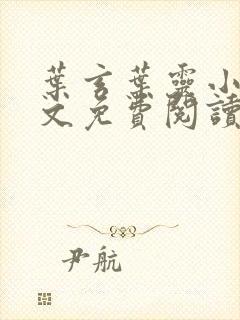 葉言葉靈小
文免費閱讀
尹航